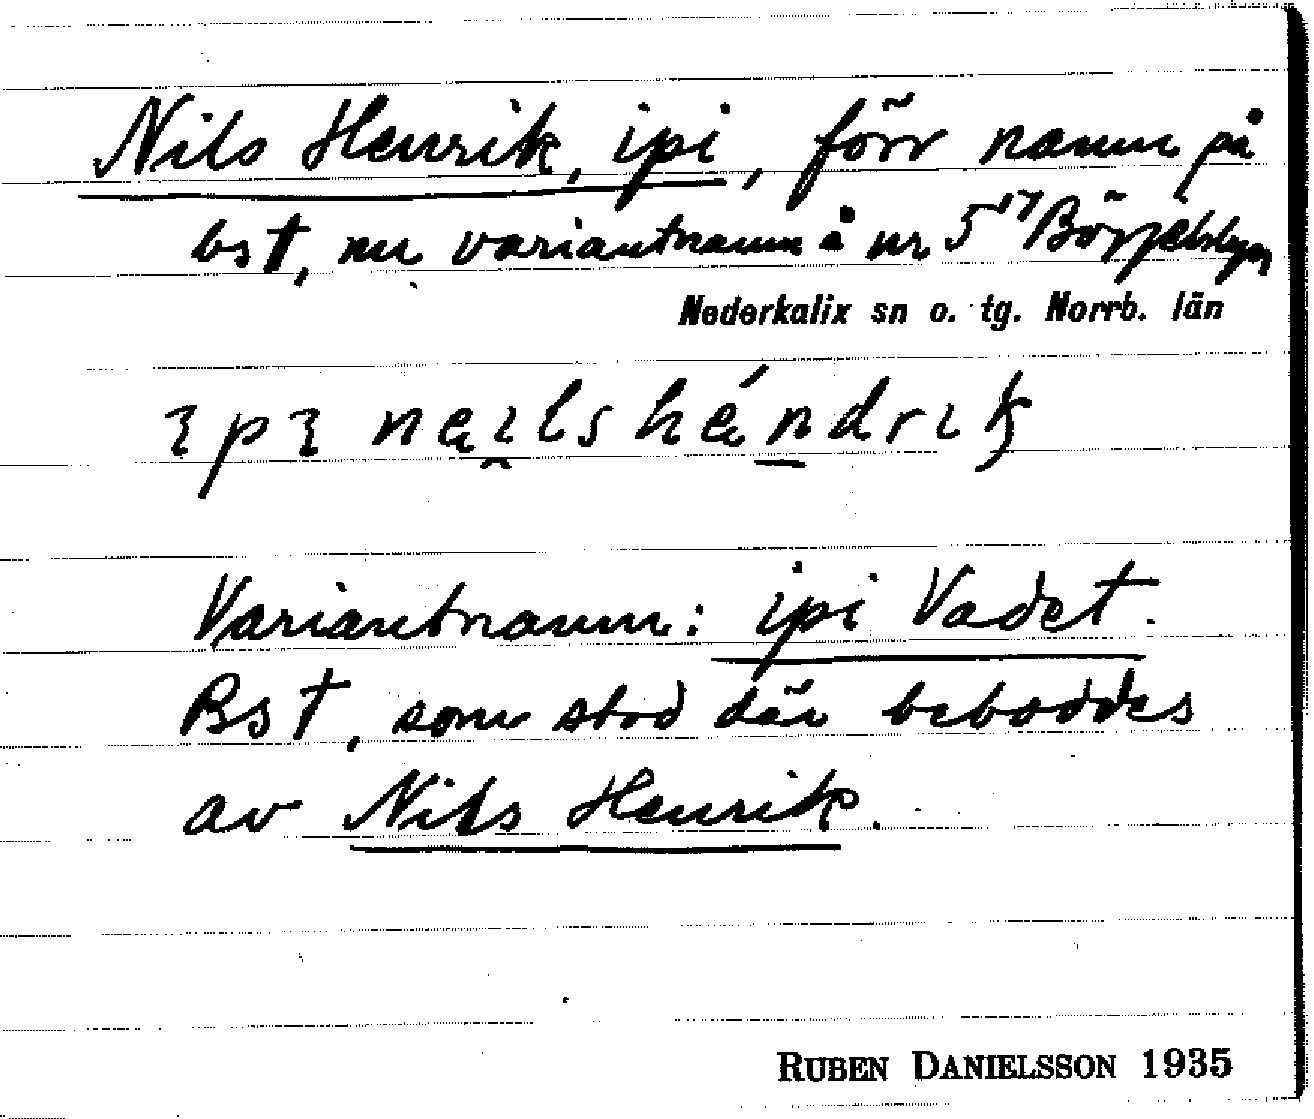 Nils Henrik, ipi, förr namn på
bst, nu variantnamn å nr 5¹⁷ Börjelsbyn
Nederkalix sn o. tg. Norrb. län
ɩpɩ neɩls héndrɩk
Variantnamn: ipi Vadet.
Bst, som stod där beboddes
av Nils Henrik.
RUBEN DANIELSSON 1935